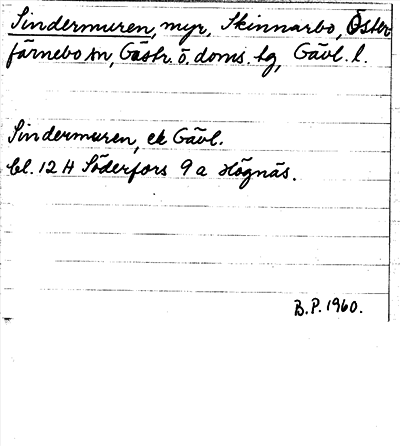 Sindermuren, myr, Skinnarbo, Öster
färnebo sn, Gästr. ö. doms. hg, Gävl. l.
Sindermuren, ek Gävl.
bl. 12 H Söderfors 9 a Högnäs.
B.P. 1960.